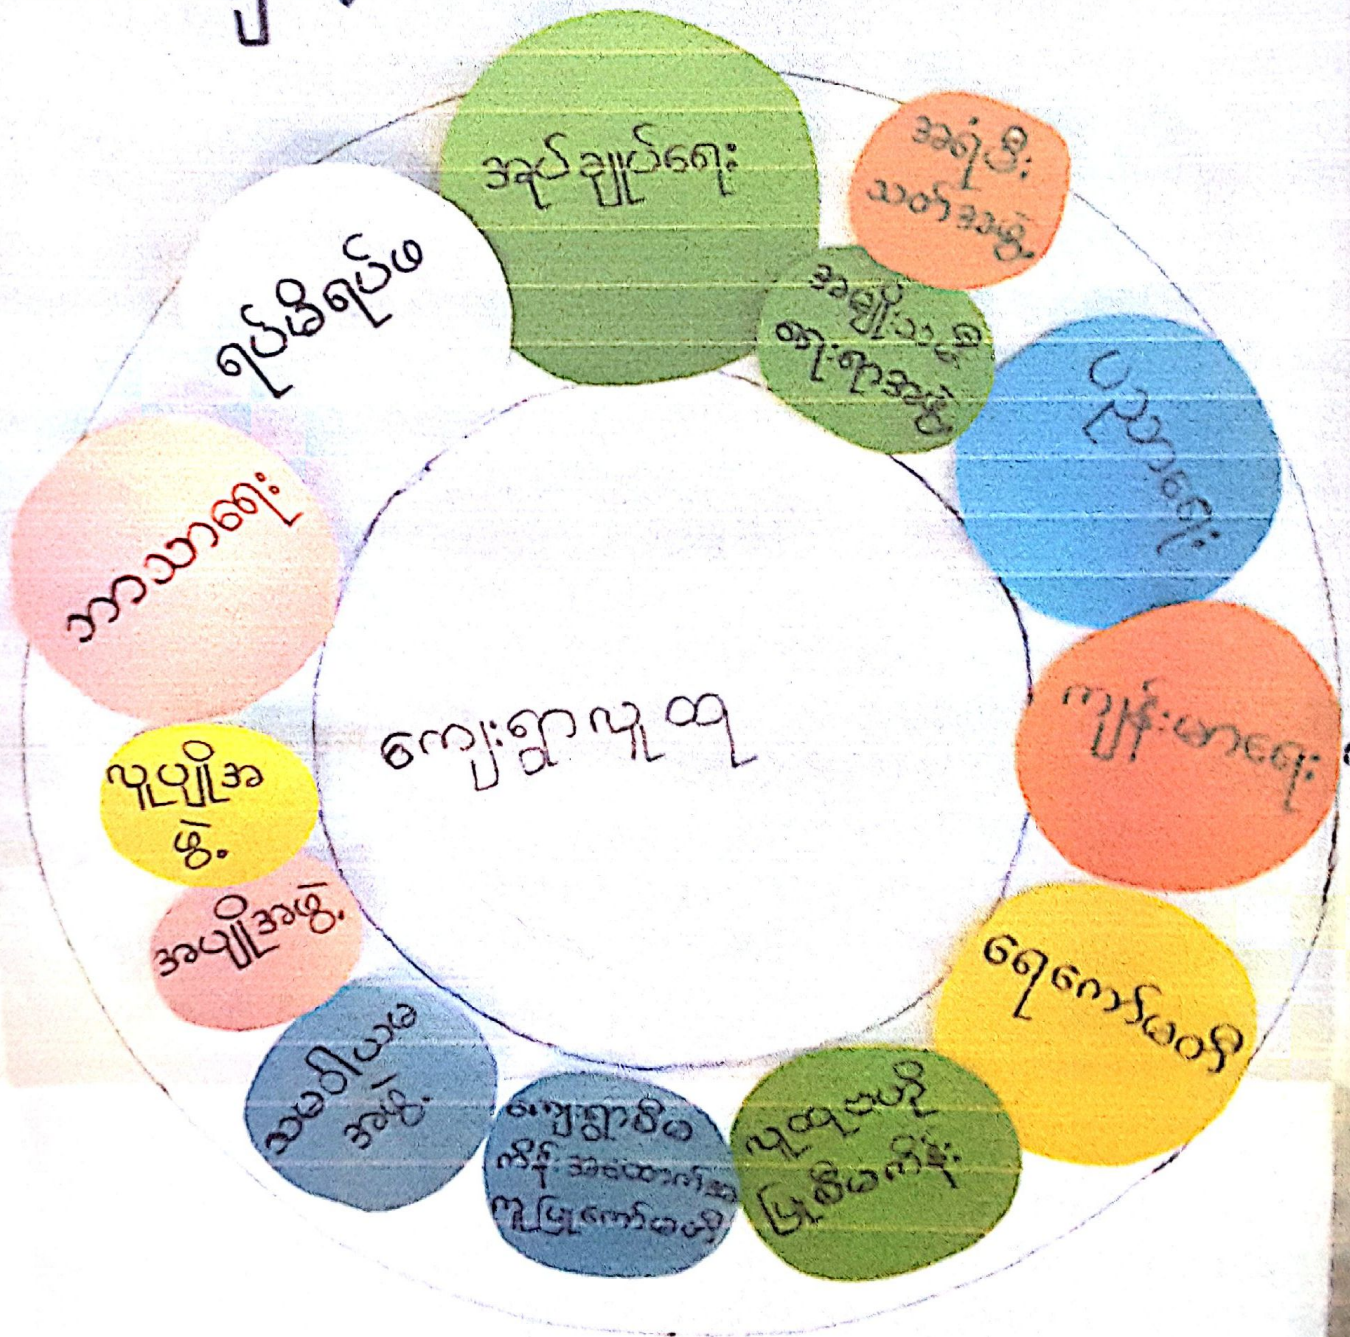 အုပ်ချုပ်ရေး
အရံမီး
သတ်အဖွဲ့
အမျိုးသမီး
ရေးရာအဖွဲ့
ပညာရေး
ကျန်းမာရေး
ရေကော်မတီ
လူထုဗဟို
ပြုစီမံကိန်း
ကျေးရွာစီမံ
ကိန်းအထောက်အ
ကူပြုကော်မတီ
သမဝါယမ
အဖွဲ့
အပျိုအဖွဲ့
လူပျိုအ
ဖွဲ့
ဘာသာရေး
ရပ်မိရပ်ဖ
ကျေးရွာလူထု